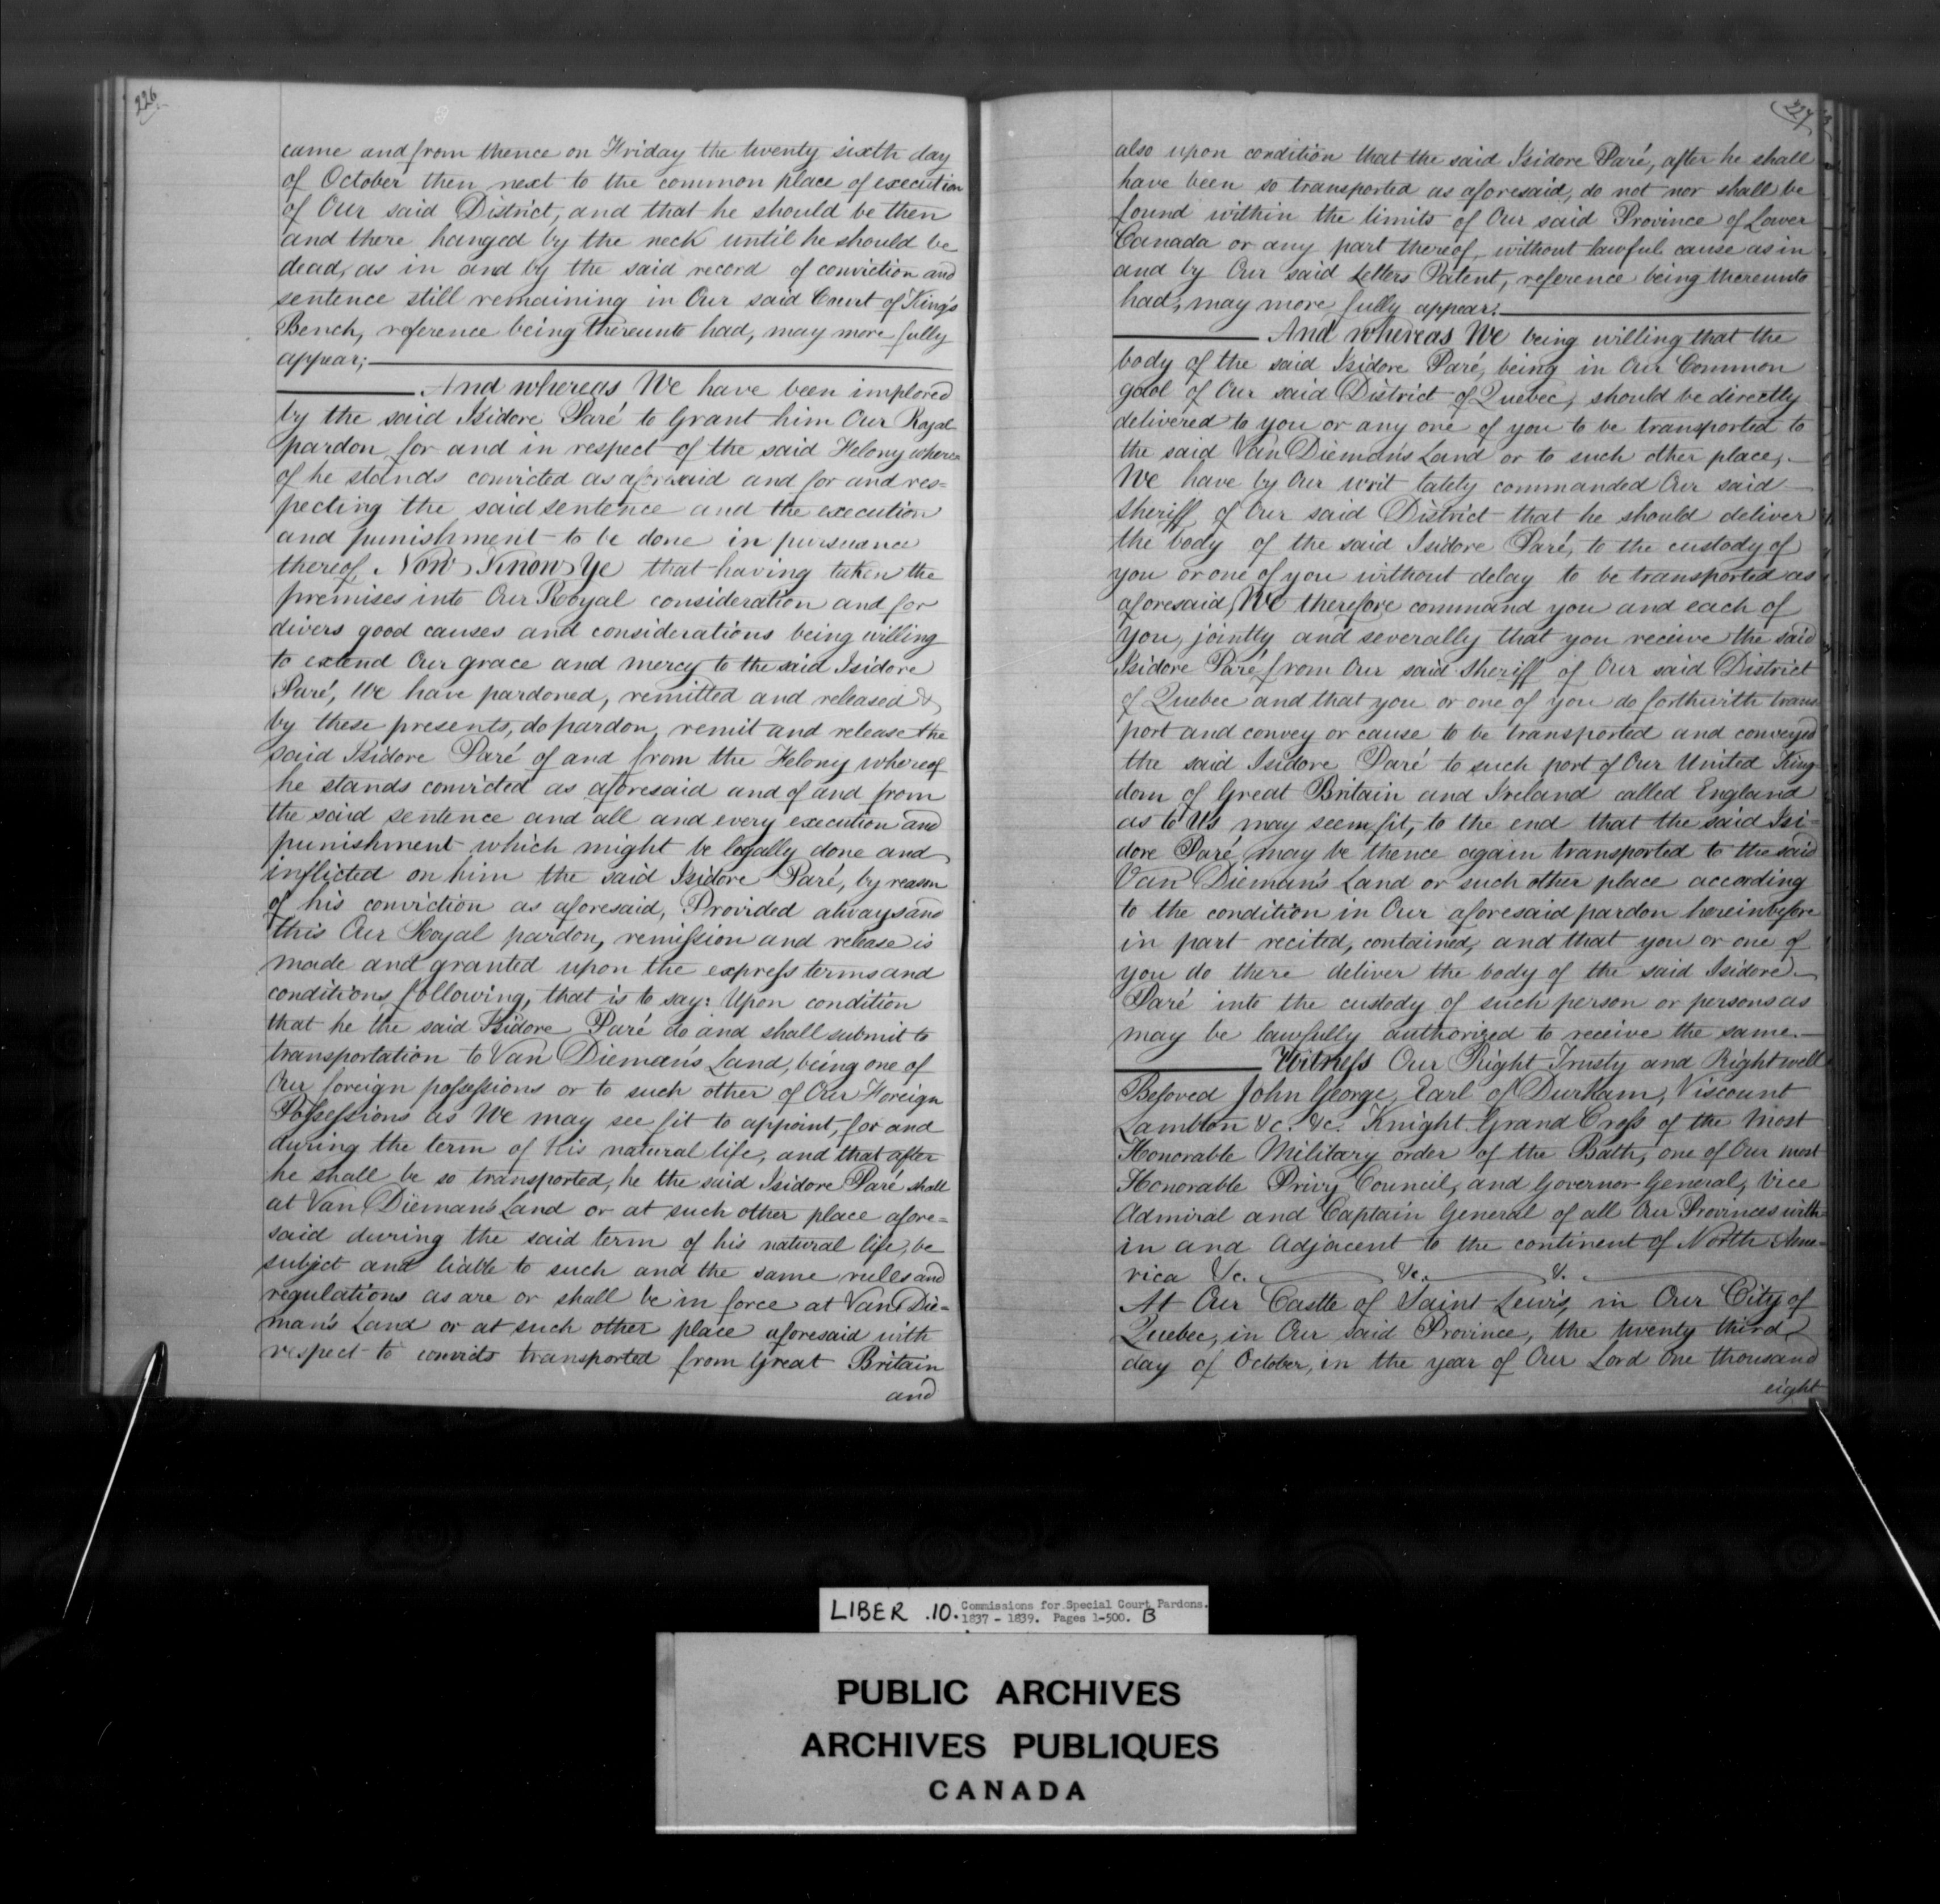 226
came and from thence on Friday the twenty sixth day
of October then next to the common place of execution
of Our said District, and that he should be then
and there hanged by the neck until he should be
dead, as in and by the said record of conviction and
sentence still remaining in Our said Court of King's
Bench, reference being thereunto had, may more fully
appear;
And whereas We have been implored
by the said Isidore Paré to Grant him Our Royal
pardon for and in respect of the said Felony where=
of he stands convicted as aforesaid and for and res=
pecting the said sentence and the execution
and punishment to be done in pursuance
thereof. Now Know Ye that having taken the
premises into Our Royal consideration and for
divers good causes and considerations being willing
to extend Our grace and mercy to the said Isidore
Paré, We have pardoned, remitted and released &
by these presents, do pardon, remit and release the
said Isidore Paré of and from the Felony whereof
he stands convicted as aforesaid and of and from
the said sentence and all and every execution and
punishment which might be legally done and
inflicted on him the said Isidore Paré, by reason
of his conviction as aforesaid, Provided always and
this Our Royal pardon, remission and release is
made and granted upon the express terms and
conditions following, that is to say: Upon condition
that he the said Isidore Paré do and shall submit to
transportation to Van Dieman's Land, being one of
Our foreign possessions or to such other of Our Foreign
Possessions as We may see fit to appoint, for and
during the term of his natural life, and that after
he shall be so transported, he the said Isidore Paré shall
at Van Dieman's Land or at such other place afore=
said during the said term of his natural life, be
subject and liable to such and the same rules and
regulations as are or shall be in force at Van Die=
man's Land or at such other place aforesaid with
respect to convicts transported from Great Britain
and
227
also upon condition that the said Isidore Paré, after he shall
have been so transported as aforesaid, do not nor shall be
found within the limits of Our said Province of Lower
Canada or any part thereof, without lawful cause as in
and by Our said Letters Patent, reference being thereunto
had, may more fully appear.
And whereas We being willing that the
body of the said Isidore Paré, being in Our Common
gaol of Our said District of Quebec, should be directly
delivered to you or any one of you to be transported to
the said Van Dieman's Land or to such other place,
We have by Our writ lately commanded Our said
Sheriff of Our said District that he should deliver
the body of the said Isidore Paré, to the custody of
you or one of you without delay to be transported as
aforesaid, We therefore command you and each of
you, jointly and severally that you receive the said
Isidore Paré from Our said Sheriff of Our said District
of Quebec and that you or one of you do forthwith trans
port and convey or cause to be transported and conveyed
the said Isidore Paré to such port of Our United King
dom of Great Britain and Ireland called England
as to Us may seem fit, to the end that the said Isi=
dore Paré may be thence again transported to the said
Van Dieman's Land or such other place according
to the condition in Our aforesaid pardon hereinbefore
in part recited, contained, and that you or one of
you do there deliver the body of the said Isidore
Paré into the custody of such person or persons as
may be lawfully authorized to receive the same.
Witness Our Right Trusty and Right well
Beloved John George, Earl of Durham, Viscount
Lambton &c. &c. Knight Grand Cross of the Most
Honorable Military order of the Bath, one of Our most
Honorable Privy Council, and Governor General, Vice
Admiral and Captain General of all Our Provinces with=
in and Adjacent to the continent of North Ame=
rica &c. &c. &.
At Our Castle of Saint Lewis, in Our City of
Quebec, in Our said Province, the twenty third
day of October, in the year of Our Lord One thousand
eight
LIBER .10. Commissions for Special Court Pardons.
1837 - 1839. Pages 1-500. B
PUBLIC ARCHIVES
ARCHIVES PUBLIQUES
CANADA